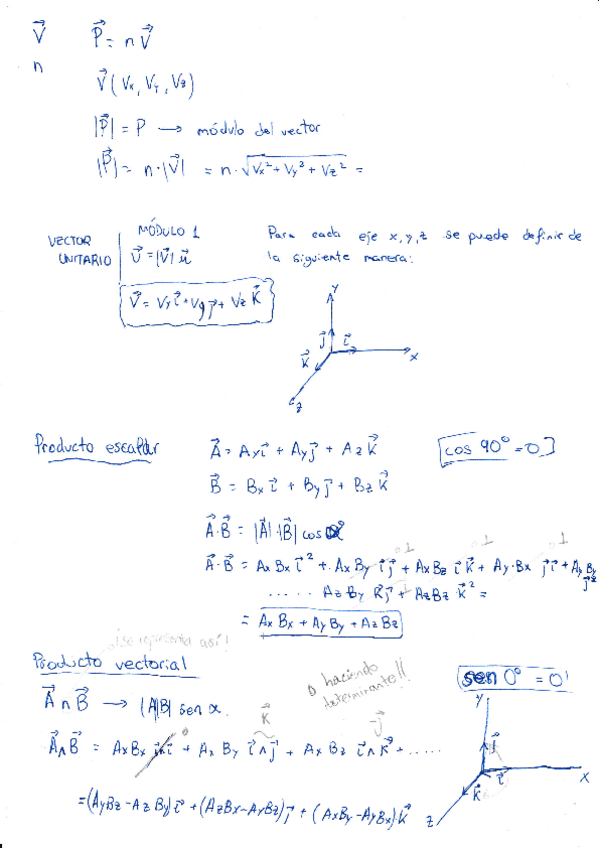 V⃗ P⃗ = n V⃗
n
V⃗ (Vx, Vy, Vz)
|P⃗| = P → módulo del vector
|P⃗| = n·|V⃗| = n·√(Vx² + Vy² + Vz²) =
VECTOR UNITARIO
MÓDULO 1
V⃗ = |V⃗| u⃗
V⃗ = Vy i⃗ + Vy j⃗ + Vz K⃗
Para cada eje x, y, z se puede definir de
la siguiente manera:
y
j⃗ i⃗
K⃗ x
z
Producto escalar A⃗ = Ax i⃗ + Ay j⃗ + Az K⃗ cos 90° = 0
B⃗ = Bx i⃗ + By j⃗ + Bz K⃗
A⃗·B⃗ = |A⃗|·|B⃗| cos α
A⃗·B⃗ = AxBx i⃗² + AxBy i⃗ j⃗ + AxBz i⃗ K⃗ + Ay·Bx j⃗ i⃗ + AyBy j⃗²
..... AzBy K⃗ j⃗ + AzBz K⃗² =
= AxBx + AyBy + AzBz
¡se representa así!
Producto vectorial sen 0° = 0!
A⃗ ∧ B⃗ → |A||B| sen α.
o haciendo
determinante!!
K⃗ -j⃗
A⃗ ∧ B⃗ = AxBx i⃗ ∧ i⃗ 0 + Ax By i⃗ ∧ j⃗ + Ax Bz i⃗ ∧ K⃗ + .....
= (AyBz - AzBy) i⃗ + (AzBx - AxBz) j⃗ + (AxBy - AyBx)·K⃗
y
j⃗
i⃗
K⃗ x
z